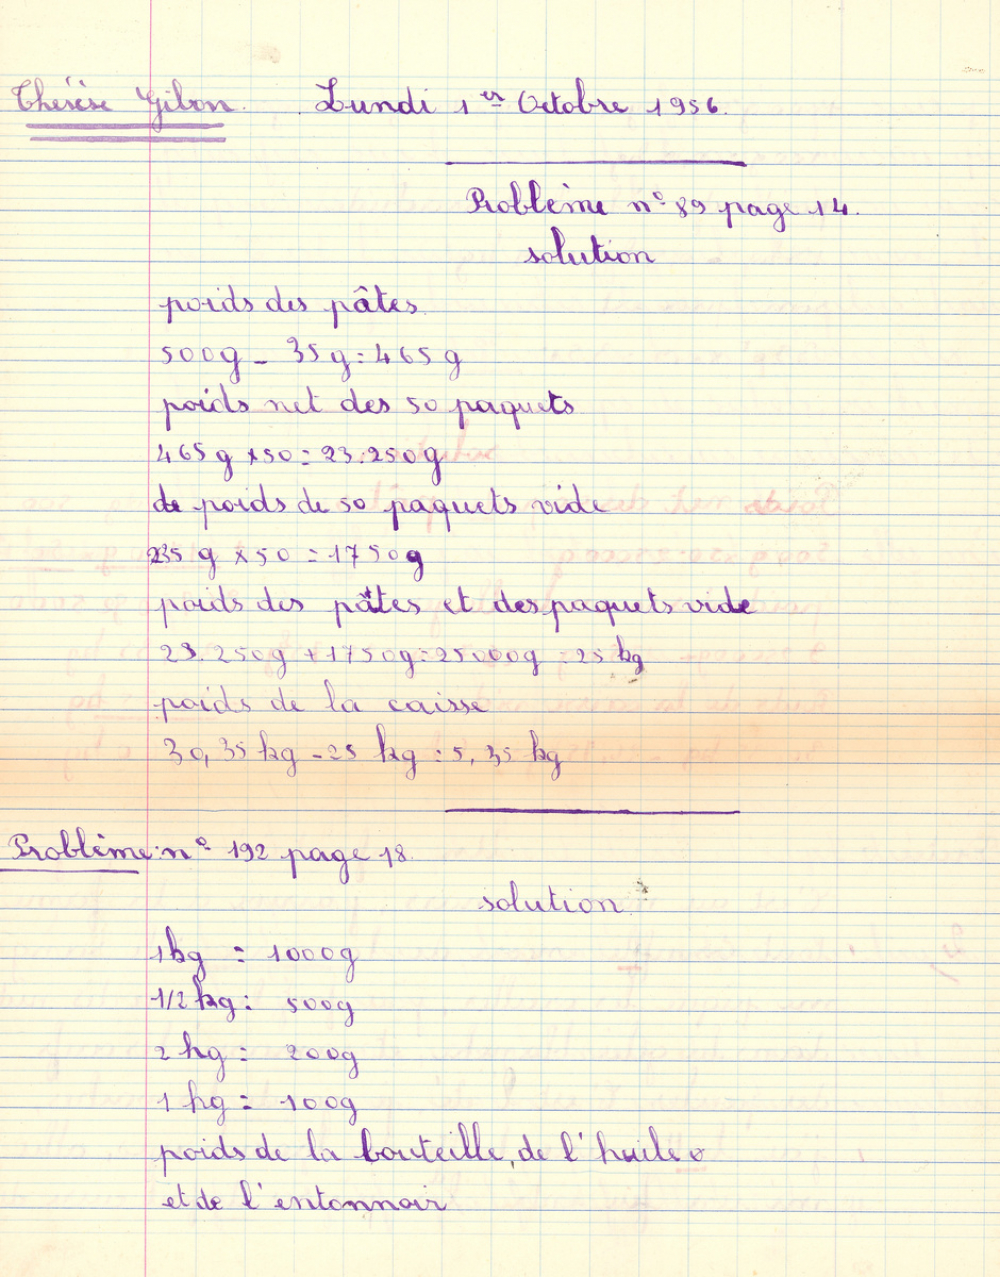 Thérèse Gibon. Lundi 1er Octobre 1956.
Problème n° 89 page 14.
solution
poids des pâtes.
500g - 35g = 465 g
poids net des 50 paquets
465 g × 50 = 23.250g
de poids de 50 paquets vide
35 g × 50 = 1750g
poids des pâtes et des paquets vide
23.250g + 1750g = 25000g = 25 kg
poids de la caisse
30,35 kg - 25 kg = 5,35 kg
Problème n° 192 page 18.
solution
1kg = 1000g
1/2 kg = 500g
2 hg = 200g
1 hg = 100g
poids de la bouteille, de l'huile
et de l'entonnoir